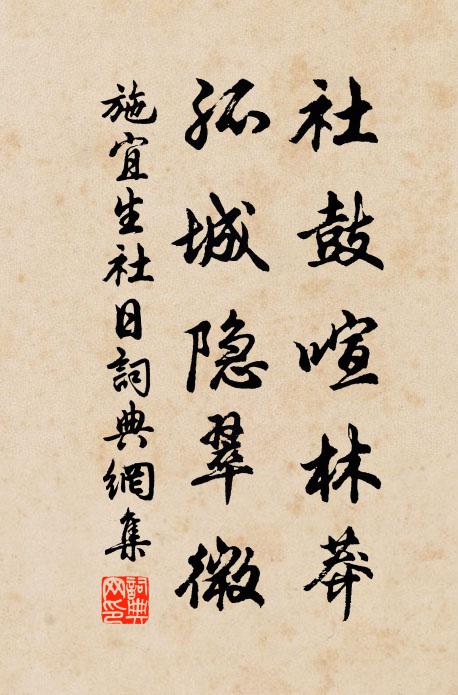 社鼓喧林莽
孤城隐翠微
施宜生社日詞典網集
詞典網印